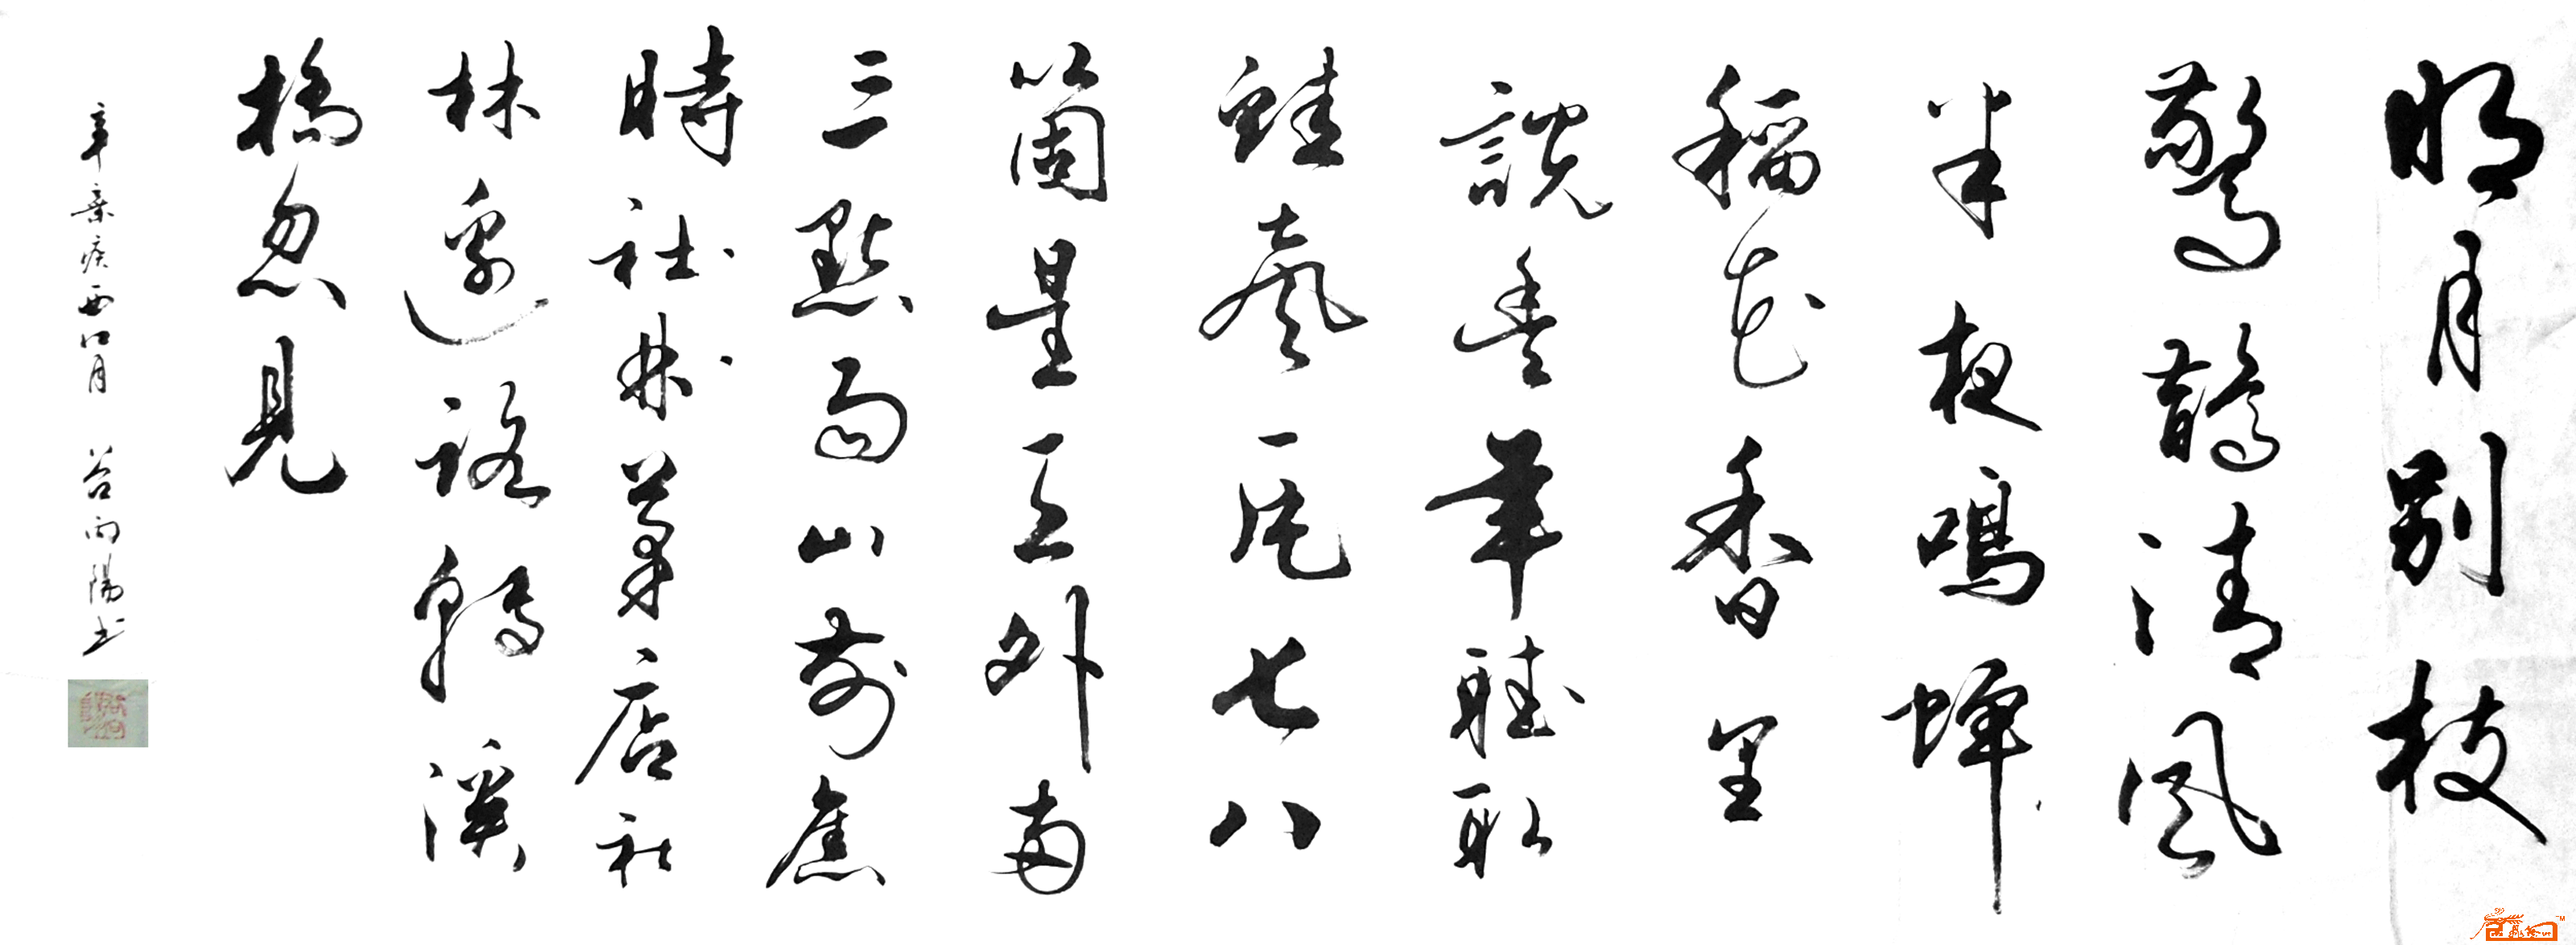 明月別枝
驚鵲清風
半夜鳴蟬
稻花香里
説豊年聽取
蛙聲一片七八
箇星天外兩
三點雨山前舊
時社林茅店社
林邊路轉溪
橋忽見
辛棄疾西江月 谷向陽书